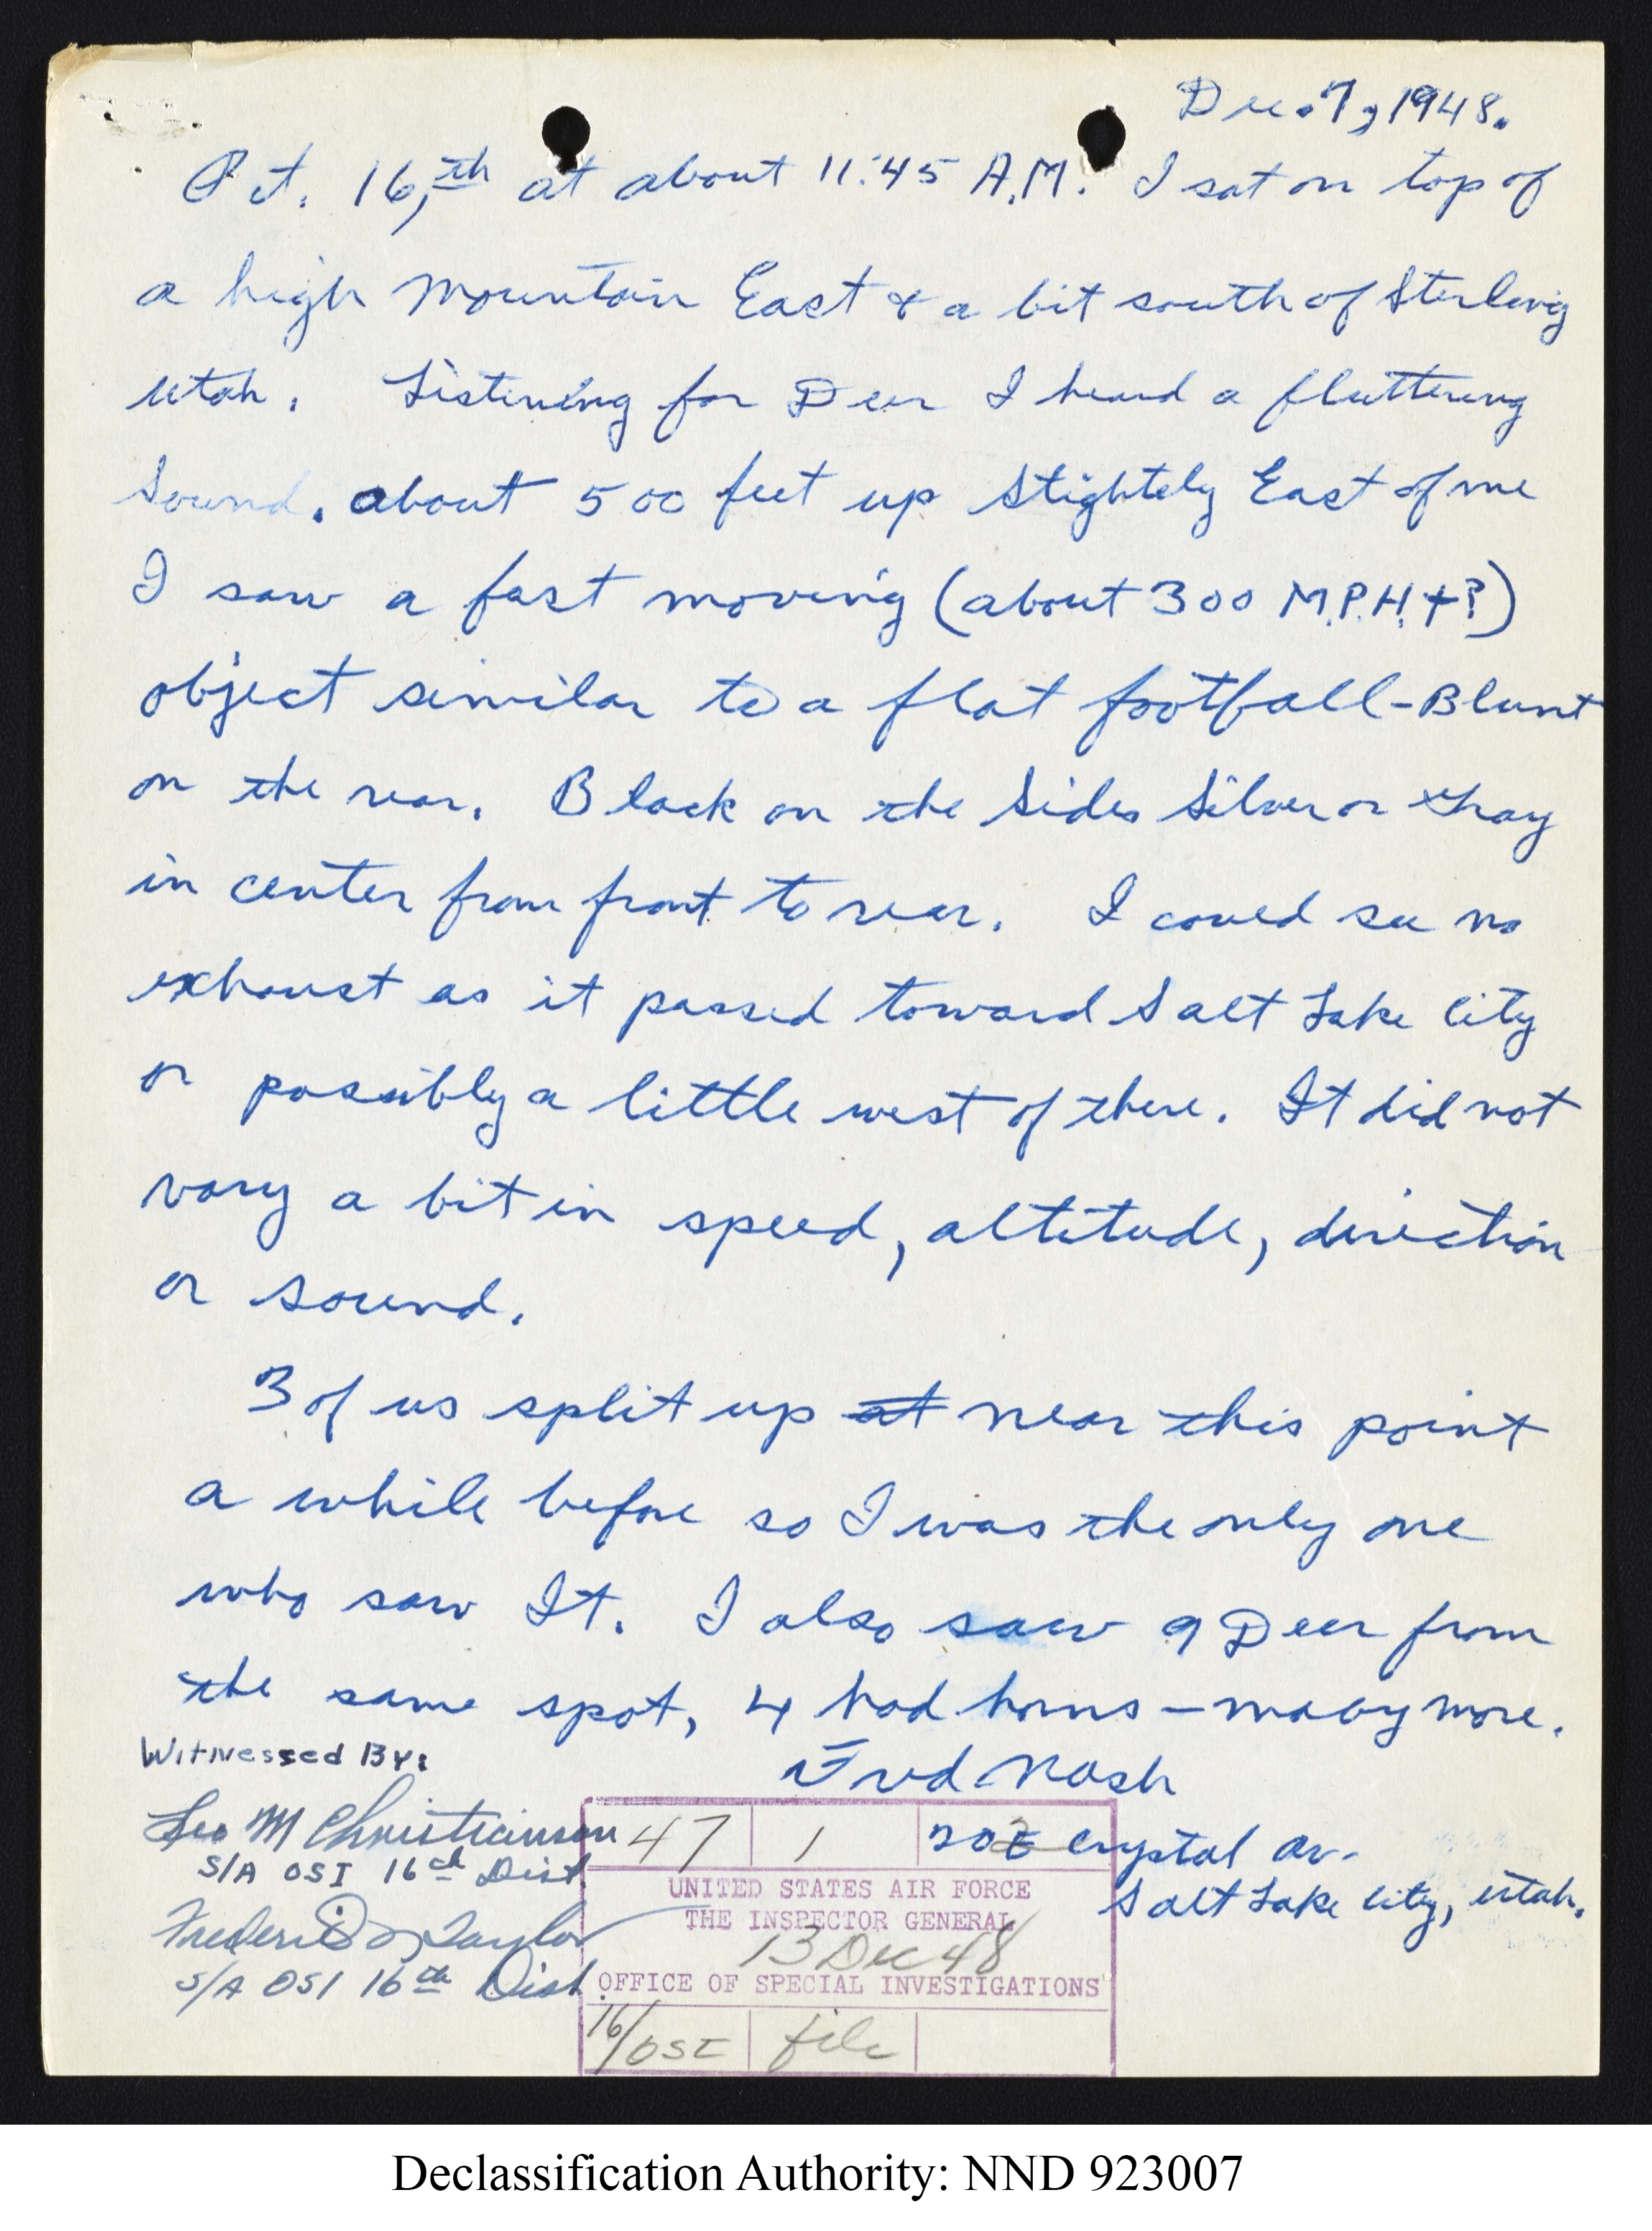 Dec. 7, 1948.
Oct. 16,th at about 11:45 A.M. I sat on top of
a high mountain East & a bit south of Sterling
Utah. Listening for Deer I heard a fluttering
Sound. about 500 feet up Slightely East of me
I saw a fast moving (about 300 M.P.H.+?)
object similar to a flat football-Blunt
on the rear. Black on the Sides Silver or Gray
in center from front to rear. I coued see no
exhaust as it passed toward Salt Lake City
or possibly a little west of there. It did not
vary a bit in speed, altitude, direction
or sound.
3 of us split up at near this point
a while before so I was the only one
who saw It. I also saw 9 Deer from
the same spot, 4 had horns – maby more.
Fred Nash
Witnessed By:
Leo M Christianson
S/A OSI 16th Dist
Frederi Taylor
S/A OSI 16th Dist.
Crystal Av.
Salt Lake City, Utah.
47 1 2
UNITED STATES AIR FORCE
THE INSPECTOR GENERAL
13 Dec 48
OFFICE OF SPECIAL INVESTIGATIONS
16/OSI file
Declassification Authority: NND 923007